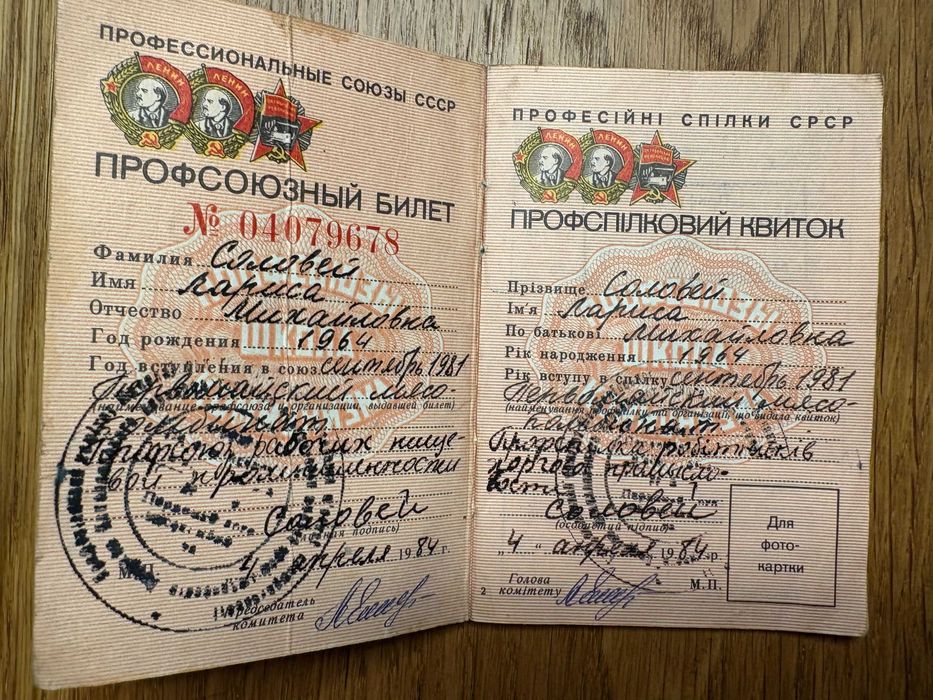 ПРОФЕССИОНАЛЬНЫЕ СОЮЗЫ СССР
ЛЕНИН ЛЕНИН
ПРОФСОЮЗНЫЙ БИЛЕТ
№ 04079678
Фамилия Соловей
Имя Лариса
Отчество Михайловна
Год рождения 1964
Год вступления в союз сентябрь 1981
Первомайский мясо-
(наименование профсоюза и организации, выдавшей билет)
комбинат
Профсоюз рабочих пище-
вой промышленности
Соловей
(личная подпись)
4 апреля 1984 г.
М.П.
Председатель
комитета
ПРОФЕСІЙНІ СПІЛКИ СРСР
ЛЕНИН ЛЕНИН
ПРОФСПІЛКОВИЙ КВИТОК
Прізвище Соловей
Ім'я Лариса
По батькові Михайловна
Рік народження 1964
Рік вступу в спілку сентябрь 1981
Первомайский мясо-
(найменування профспілки та організації, що видала квиток)
комбинат
робітників
Соловей
(особистий підпис)
„4“ апреля 1984 р.
Голова
комітету
М.П.
Для
фото-
картки
2